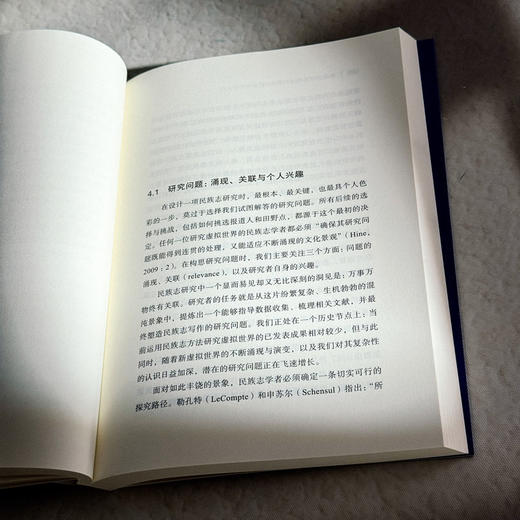 4.1 研究问题：涌现、关联与个人兴趣
在设计一项民族志研究时，最根本、最关键，也最具个人色
彩的一步，莫过于选择我们试图解答的研究问题。所有后续的选
择与挑战，包括如何挑选报道人和田野点，都源于这个最初的决
定。任何一位研究虚拟世界的民族志学者都必须“确保其研究问
题既能得到连贯的处理，又能适应不断涌现的文化景观”（Hine，
2009：2）。在构思研究问题时，我们主要关注三个方面：问题的
涌现、关联（relevance），以及研究者自身的兴趣。
民族志研究中一个显而易见却又无比深刻的洞见是：万事万
物终有关联。研究者的任务就是从这片纷繁复杂、生机勃勃的混
沌景象中，提炼出一个能够指导数据收集、梳理相关文献，并最
终塑造民族志写作的研究问题。我们正处在一个历史节点上：当
前运用民族志方法研究虚拟世界的已发表成果相对较少，但与此
同时，随着新虚拟世界的不断涌现与演变，以及我们对其复杂性
的认识日益加深，潜在的研究问题正在飞速增长。
面对如此丰饶的景象，民族志学者必须确定一条切实可行的
探究路径。勒孔特（LeCompte）和申苏尔（Schensul）指出：“所